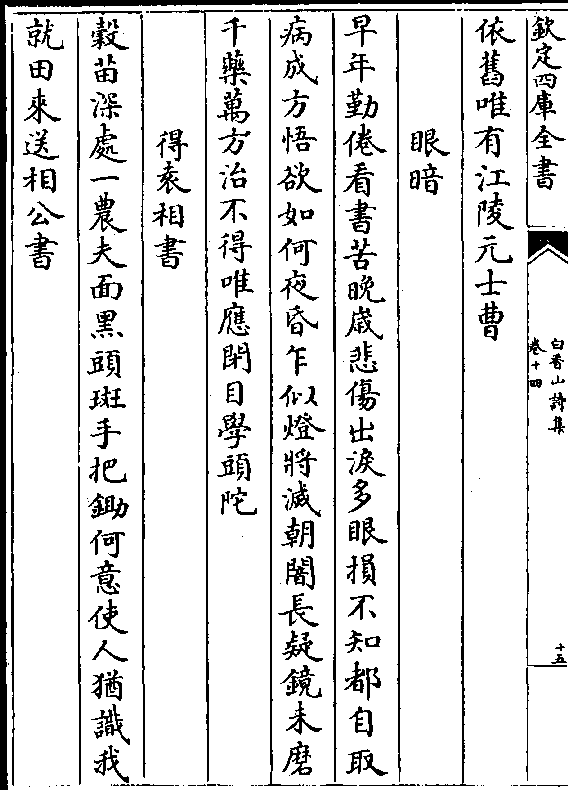 欽定四庫全書
白香山詩集
卷十四
十五
依舊唯有江陵元士曹
眼暗
早年勤倦看書苦晚歲悲傷出淚多眼損不知都自取
病成方悟欲如何夜昏乍似燈將滅朝闇長疑鏡未磨
千藥萬方治不得唯應閉目學頭陀
得袁相書
穀苗深處一農夫面黑頭斑手把鋤何意使人猶識我
就田來送相公書